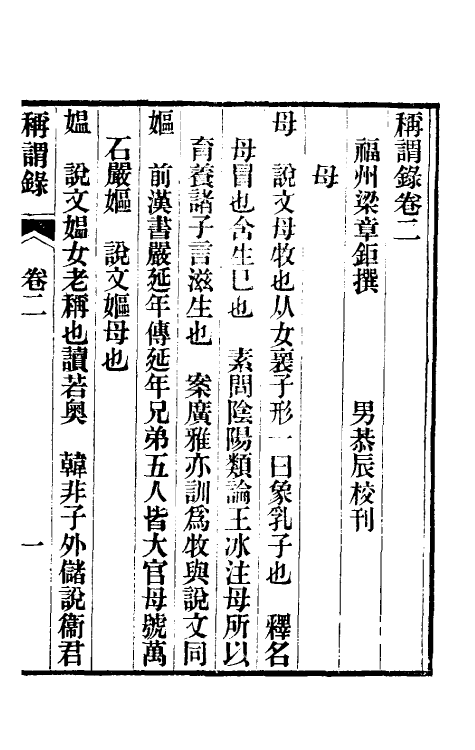 稱謂錄卷二
福州梁章鉅撰　男恭辰校刊
母
母　說文母牧也从女褱子形一曰象乳子也　釋名
母冒也含生巳也　素問陰陽類論王冰注母所以
育養諸子言滋生也　案廣雅亦訓爲牧與說文同
嫗　前漢書嚴延年傳延年兄弟五人皆大官母號萬
石嚴嫗　說文嫗母也
媪　說文媪女老稱也讀若奧　韓非子外儲說衞君
稱謂錄　卷二　一